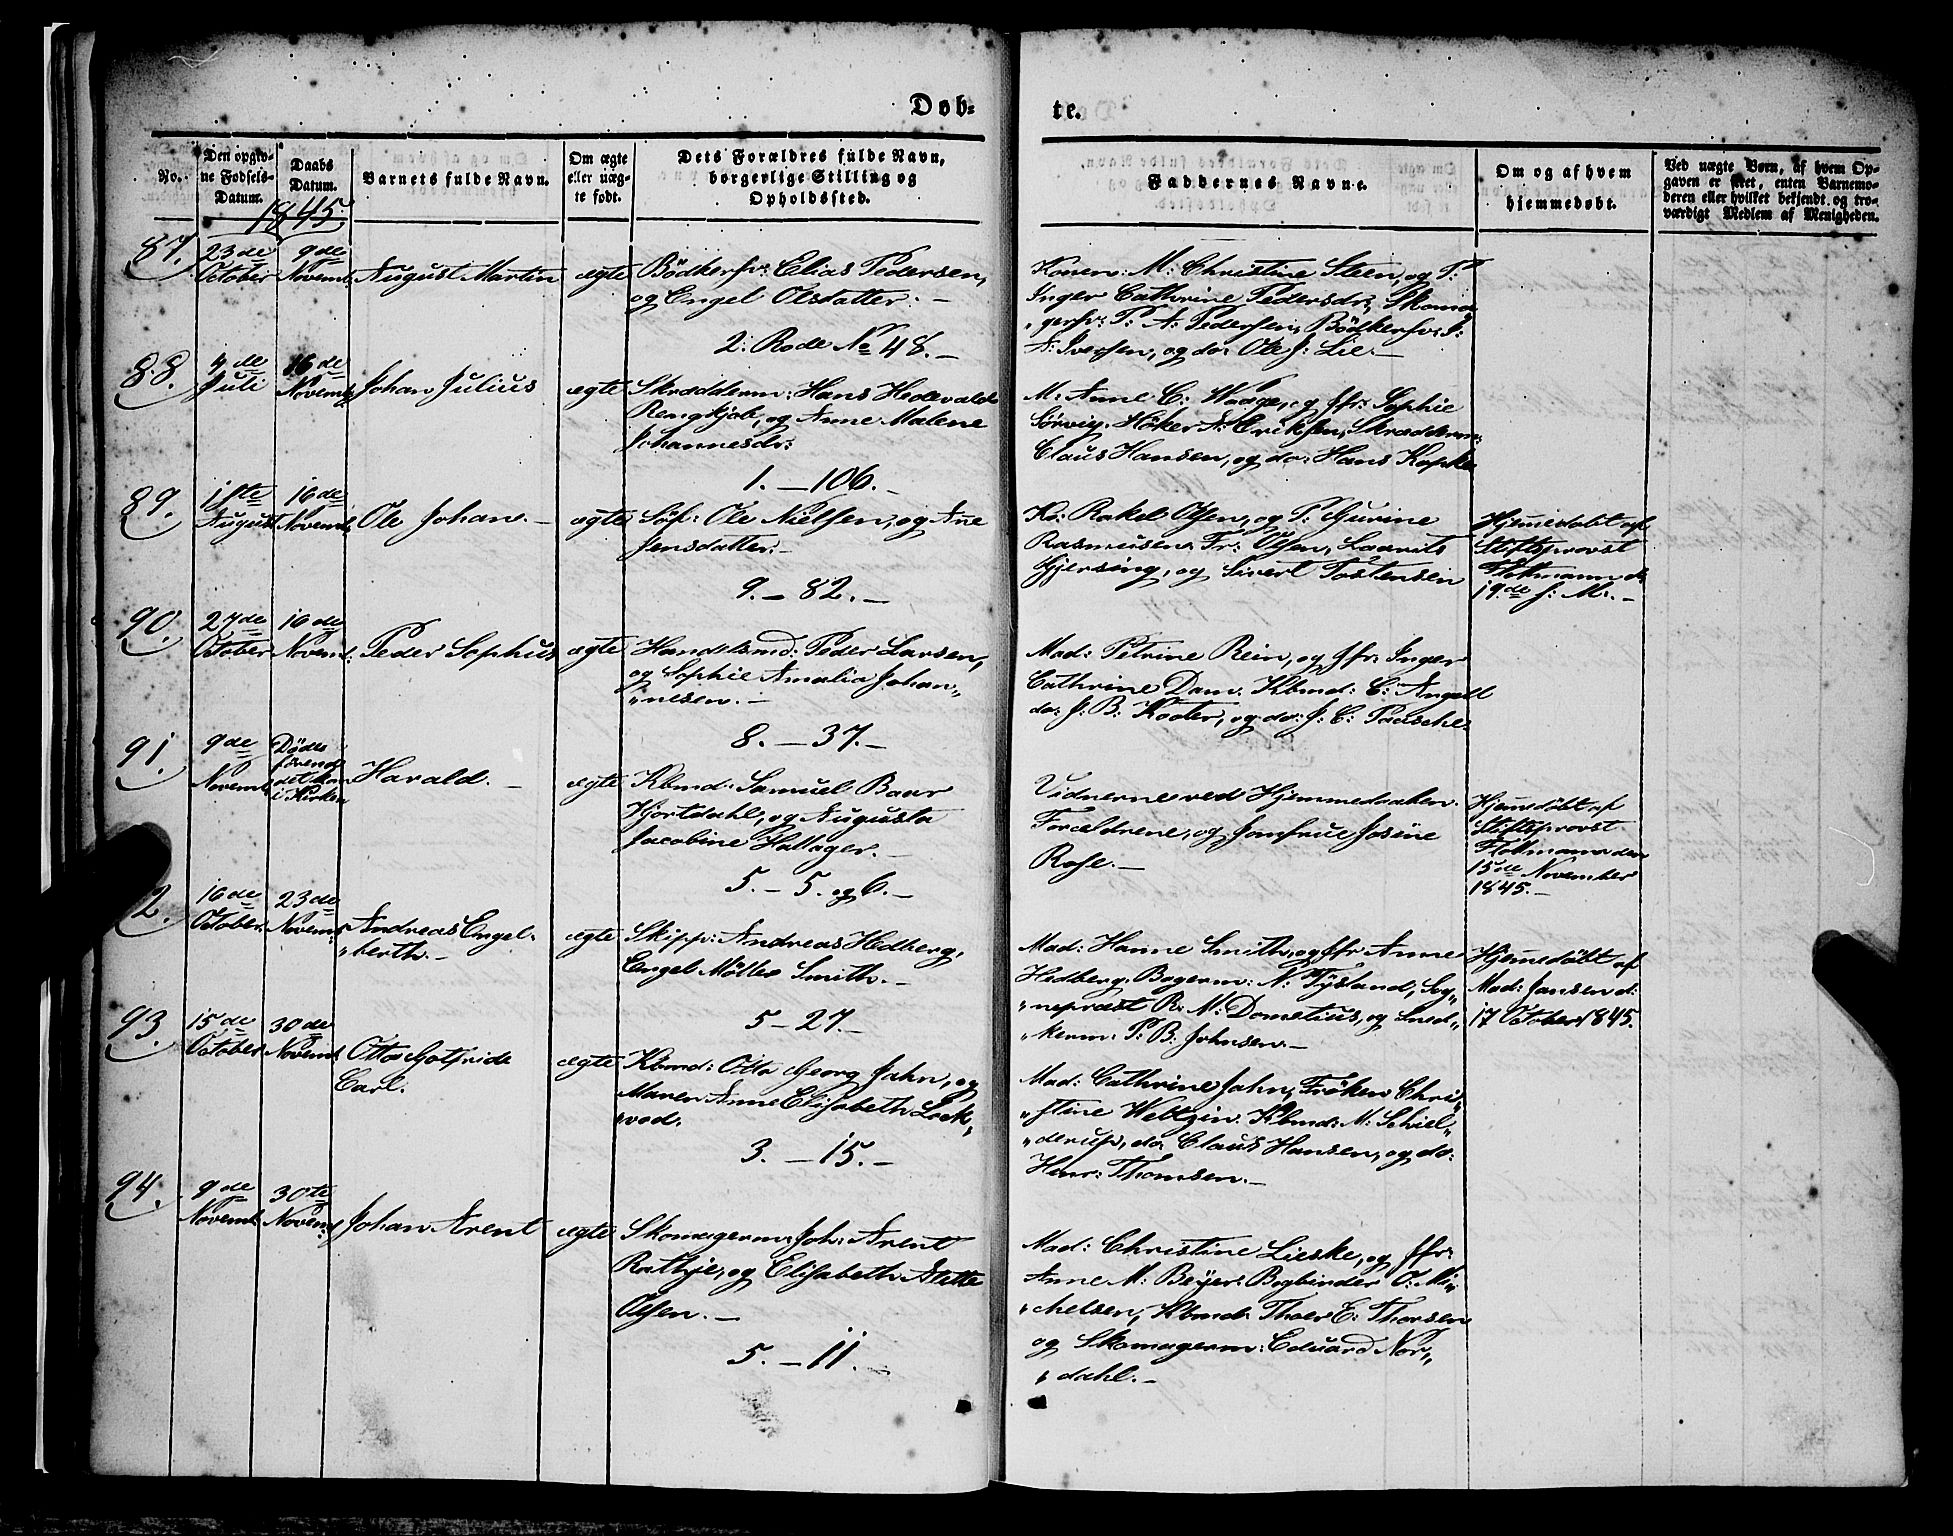 Døb-
te.
No.
Den opgiv-
ne Fødsels-
Datum.
Daabs
Datum.
Barnets fulde Navn.
Om ægte
eller uæg-
te født.
Dets Forældres fulde Navn,
borgerlige Stilling og
Opholdssted.
Faddernes Navne.
Om og af hvem
hjemmedøbt.
Ved uægte Børn, af hvem Op-
gaven er skeet, enten Barnemo-
deren eller hvilket bekjendt og tro-
værdigt Medlem af Menigheden.
1845
87.
23de
October
9de
Novemb:
August Martin
ægte
Bödkersv: Elias Pedersen,
og Engel Olsdatter. -
2: Rode No 48. -
Konen: M: Christine Steen, og P:
Inger Cathrine Pedersdr; Skoma
"gersv: P: A: Pedersen, Bödkersv: I:
A: Iversen, og do: Ole J: Lie. -
88.
4de
Juli
16de
Novemb
Johan Julius
ægte
Skrædderm: Hans Hedevald
Rengkjøb, og Anne Malene
Johannesdr:
1. - 106. -
M: Anne C: Waage, og Jfr: Sophie
Sörvig. Höker A: Eriksen, Skrædderm:
Claus Hansen, og do: Hans Kopke
89.
1ste
August
16de
Novemb
Ole Johan. -
ægte
Söf: Ole Nielsen, og Ane
Jensdatter. -
9. - 82. -
Ko: Rakel Olsen, og P: Gurine
Rasmusen. Fr: Olsen, Laurits
Gjersing, og Sivert Tostensen
Hjemedöbt af
Stiftsprovst
Flottmann d:
19de s: M:. -
90.
27de
October
16de
Novemb:
Peder Sophus
ægte
Handelsmd: Peder Larsen,
og Sophie Amalia Johan-
"nesen. -
8. - 37. -
Mad: Petrine Rein, og Jfr: Inger
Cathrine Dam. Kbmd: C: Angell
do: J. B: Kooter, og do: J: C: Pausche.
91.
9de
Novemb
Döde
förend
det kom
i Kirken
Harald. -
ægte
Kbmd: Samuel Baar
Hjortdahl, og Augusta
Jacobine Hallager. -
5. - 5. og 6. -
Vidnerne ved Hjemmedaaben.
Forældrene, og Jomfrue Josine
Rose. -
Hjemedöbt af
Stiftsprovst
Flottmann den
15de November
1845. -
2.
16de
October
23de
Novemb:
Andreas Engel-
"berth. -
ægte
Skipp: Andreas Hedberg,
Engel Möller Smith. -
5 - 27. -
Mad: Hanne Smith, og Jfr Anne
Hedberg. Bagerm: N: Tysland, Sog-
"nepræst R: M: Dometius, og Sned-
"kerm: P: B: Johnsen. -
Hjemedöbt af
Mad: Jansen d:
17 October 1845.
93.
15de
October
30de
Novemb
Otto Gotfride
Carl.
ægte
Kbmd: Otto Georg Jahn, og
Maren Anne Elisabeth Lock-
"vod.
3. - 15. -
Mad: Cathrine Jahn, Fröken Chri-
"stine Weltzin. Kbmd: M: Schiel-
"derup, do: Claus Hansen, og do:
Henr: Thomsen. -
94.
9de
Novemb
30te
Novemb
Johan Arent
ægte
Skomagerm: Joh: Arent
Rathje, og Elisabeth Mette
Olsen. -
5. - 11. -
Mad: Christine Lieske, og Jfr:
Anne M: Beyer: Bogbinder O: Mi-
"chelsen, Kbmd: Thoer E: Thorsen
og Skomagerm: Eduard Nor-
"dahl. -